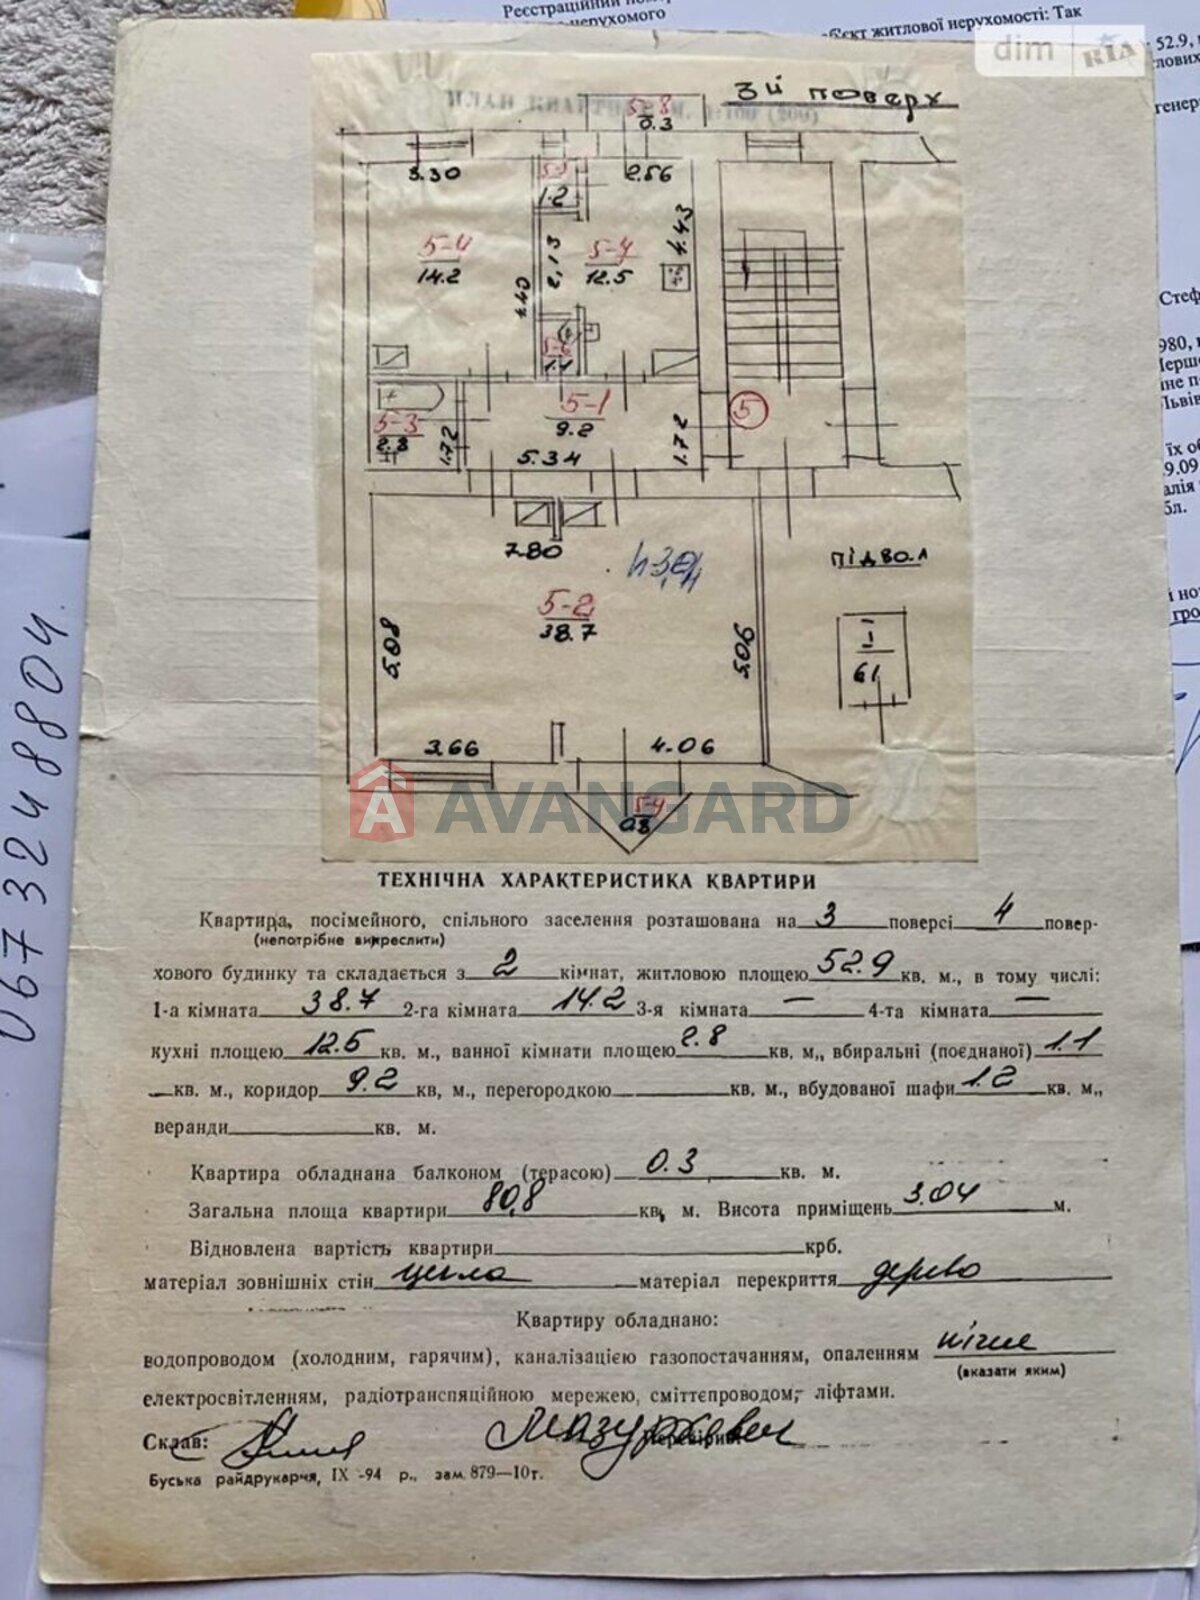 Реєстраційний
нерухомого
об'єкт житлової нерухомості: Так
52.9,
dim RIA
3й поверх
ПЛАН КВАРТИРИ М. 1:100 (200)
5-8
0.3
3.30
1.2
2.56
5-4
14.2
4.40
2.13
5-7
12.5
4.43
5-6
1.1
5-3
2.8
1.72
5-1
9.2
5.34
1.72
5
7.80
h 3,04
5-2
38.7
5.08
5.06
підвал
I
6.1
3.66
4.06
0.8
AVANGARD
0673248804
ТЕХНІЧНА ХАРАКТЕРИСТИКА КВАРТИРИ
Квартира, посімейного, спільного заселення розташована на 3 поверсі 4 повер-
(непотрібне викреслити)
хового будинку та складається з 2 кімнат, житловою площею 52.9 кв. м., в тому числі:
1-а кімната 38.7 2-га кімната 14.2 3-я кімната — 4-та кімната —
кухні площею 12.5 кв. м., ванної кімнати площею 2.8 кв. м., вбиральні (поєднаної) 1.1
кв. м., коридор 9.2 кв, м., перегородкою кв. м., вбудованої шафи 1.2 кв. м.,
веранди кв. м.
Квартира обладнана балконом (терасою) 0.3 кв. м.
Загальна площа квартири 80,8 кв. м. Висота приміщень 3.04 м.
Відновлена вартість квартири крб.
матеріал зовнішніх стін цегла матеріал перекриття дерево
Квартиру обладнано:
водопроводом (холодним, гарячим), каналізацією газопостачанням, опаленням пічне
(вказати яким)
електросвітленням, радіотранспяційною мережею, сміттєпроводом, ліфтами.
Склав: Перевірив:
Буська райдрукарня, IX -94 р., зам. 879—10т.